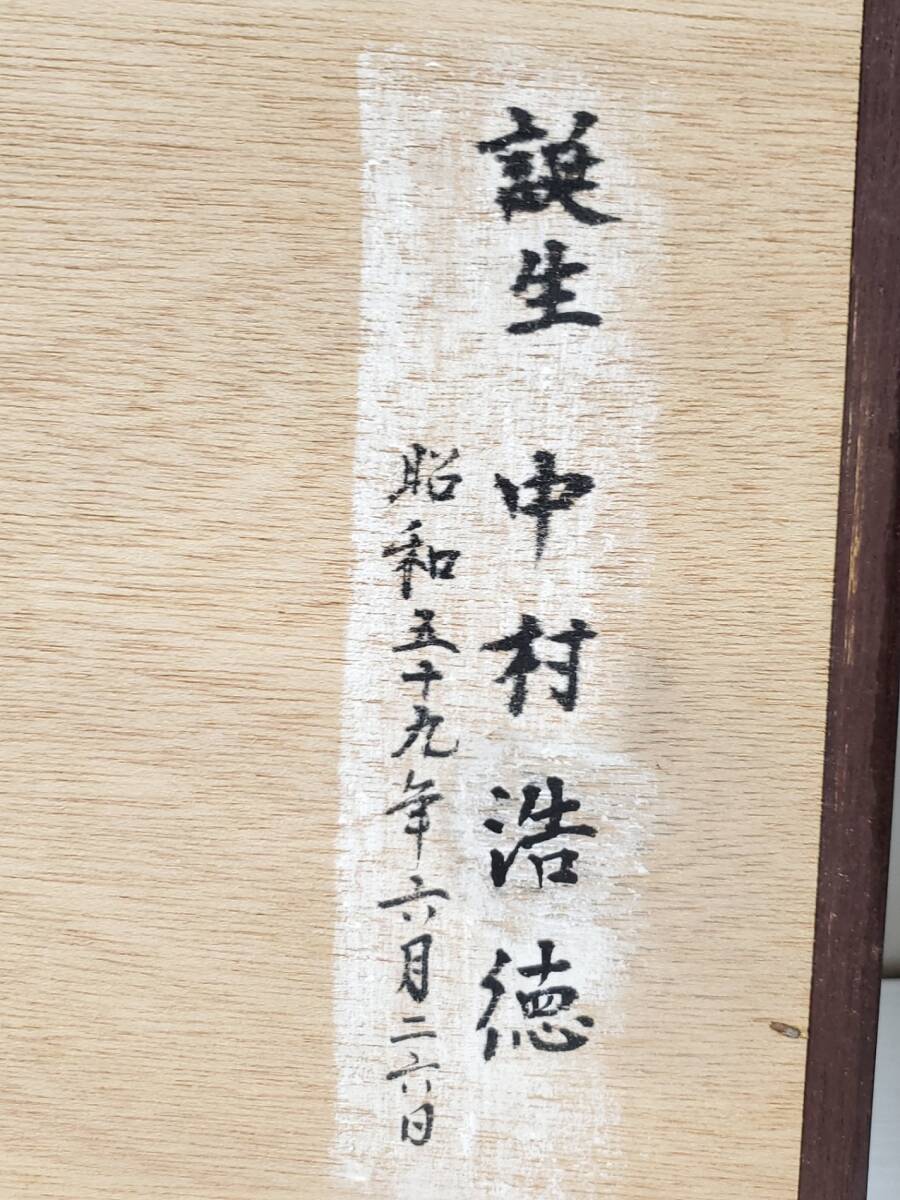 誕生 中村浩徳
昭和五十九年六月二六日